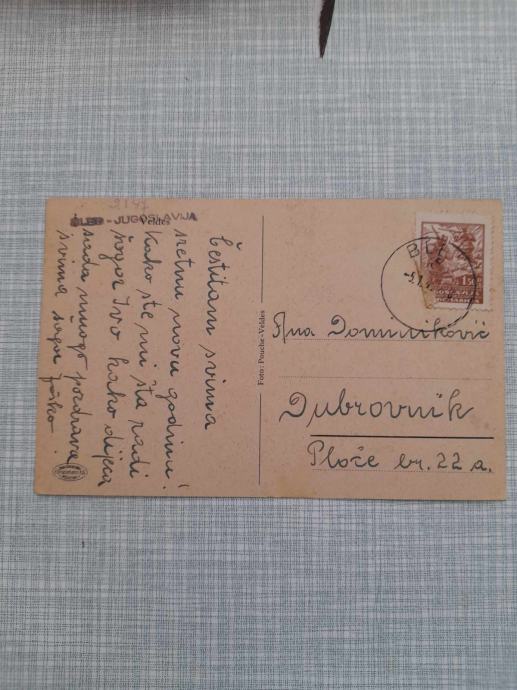 2147
BLED - JUGOSLAVIJA
Veldes
Čestitam svima
sretnu novu godinu!
Kako ste mi šta radi
šogor Ivo kako dijeca
sada mnogo pozdrava
svima vaša
Foto: Pouche-Veldes
BLED
1.50
Ana Dominiković
Dubrovnik
Ploče br. 22 a.